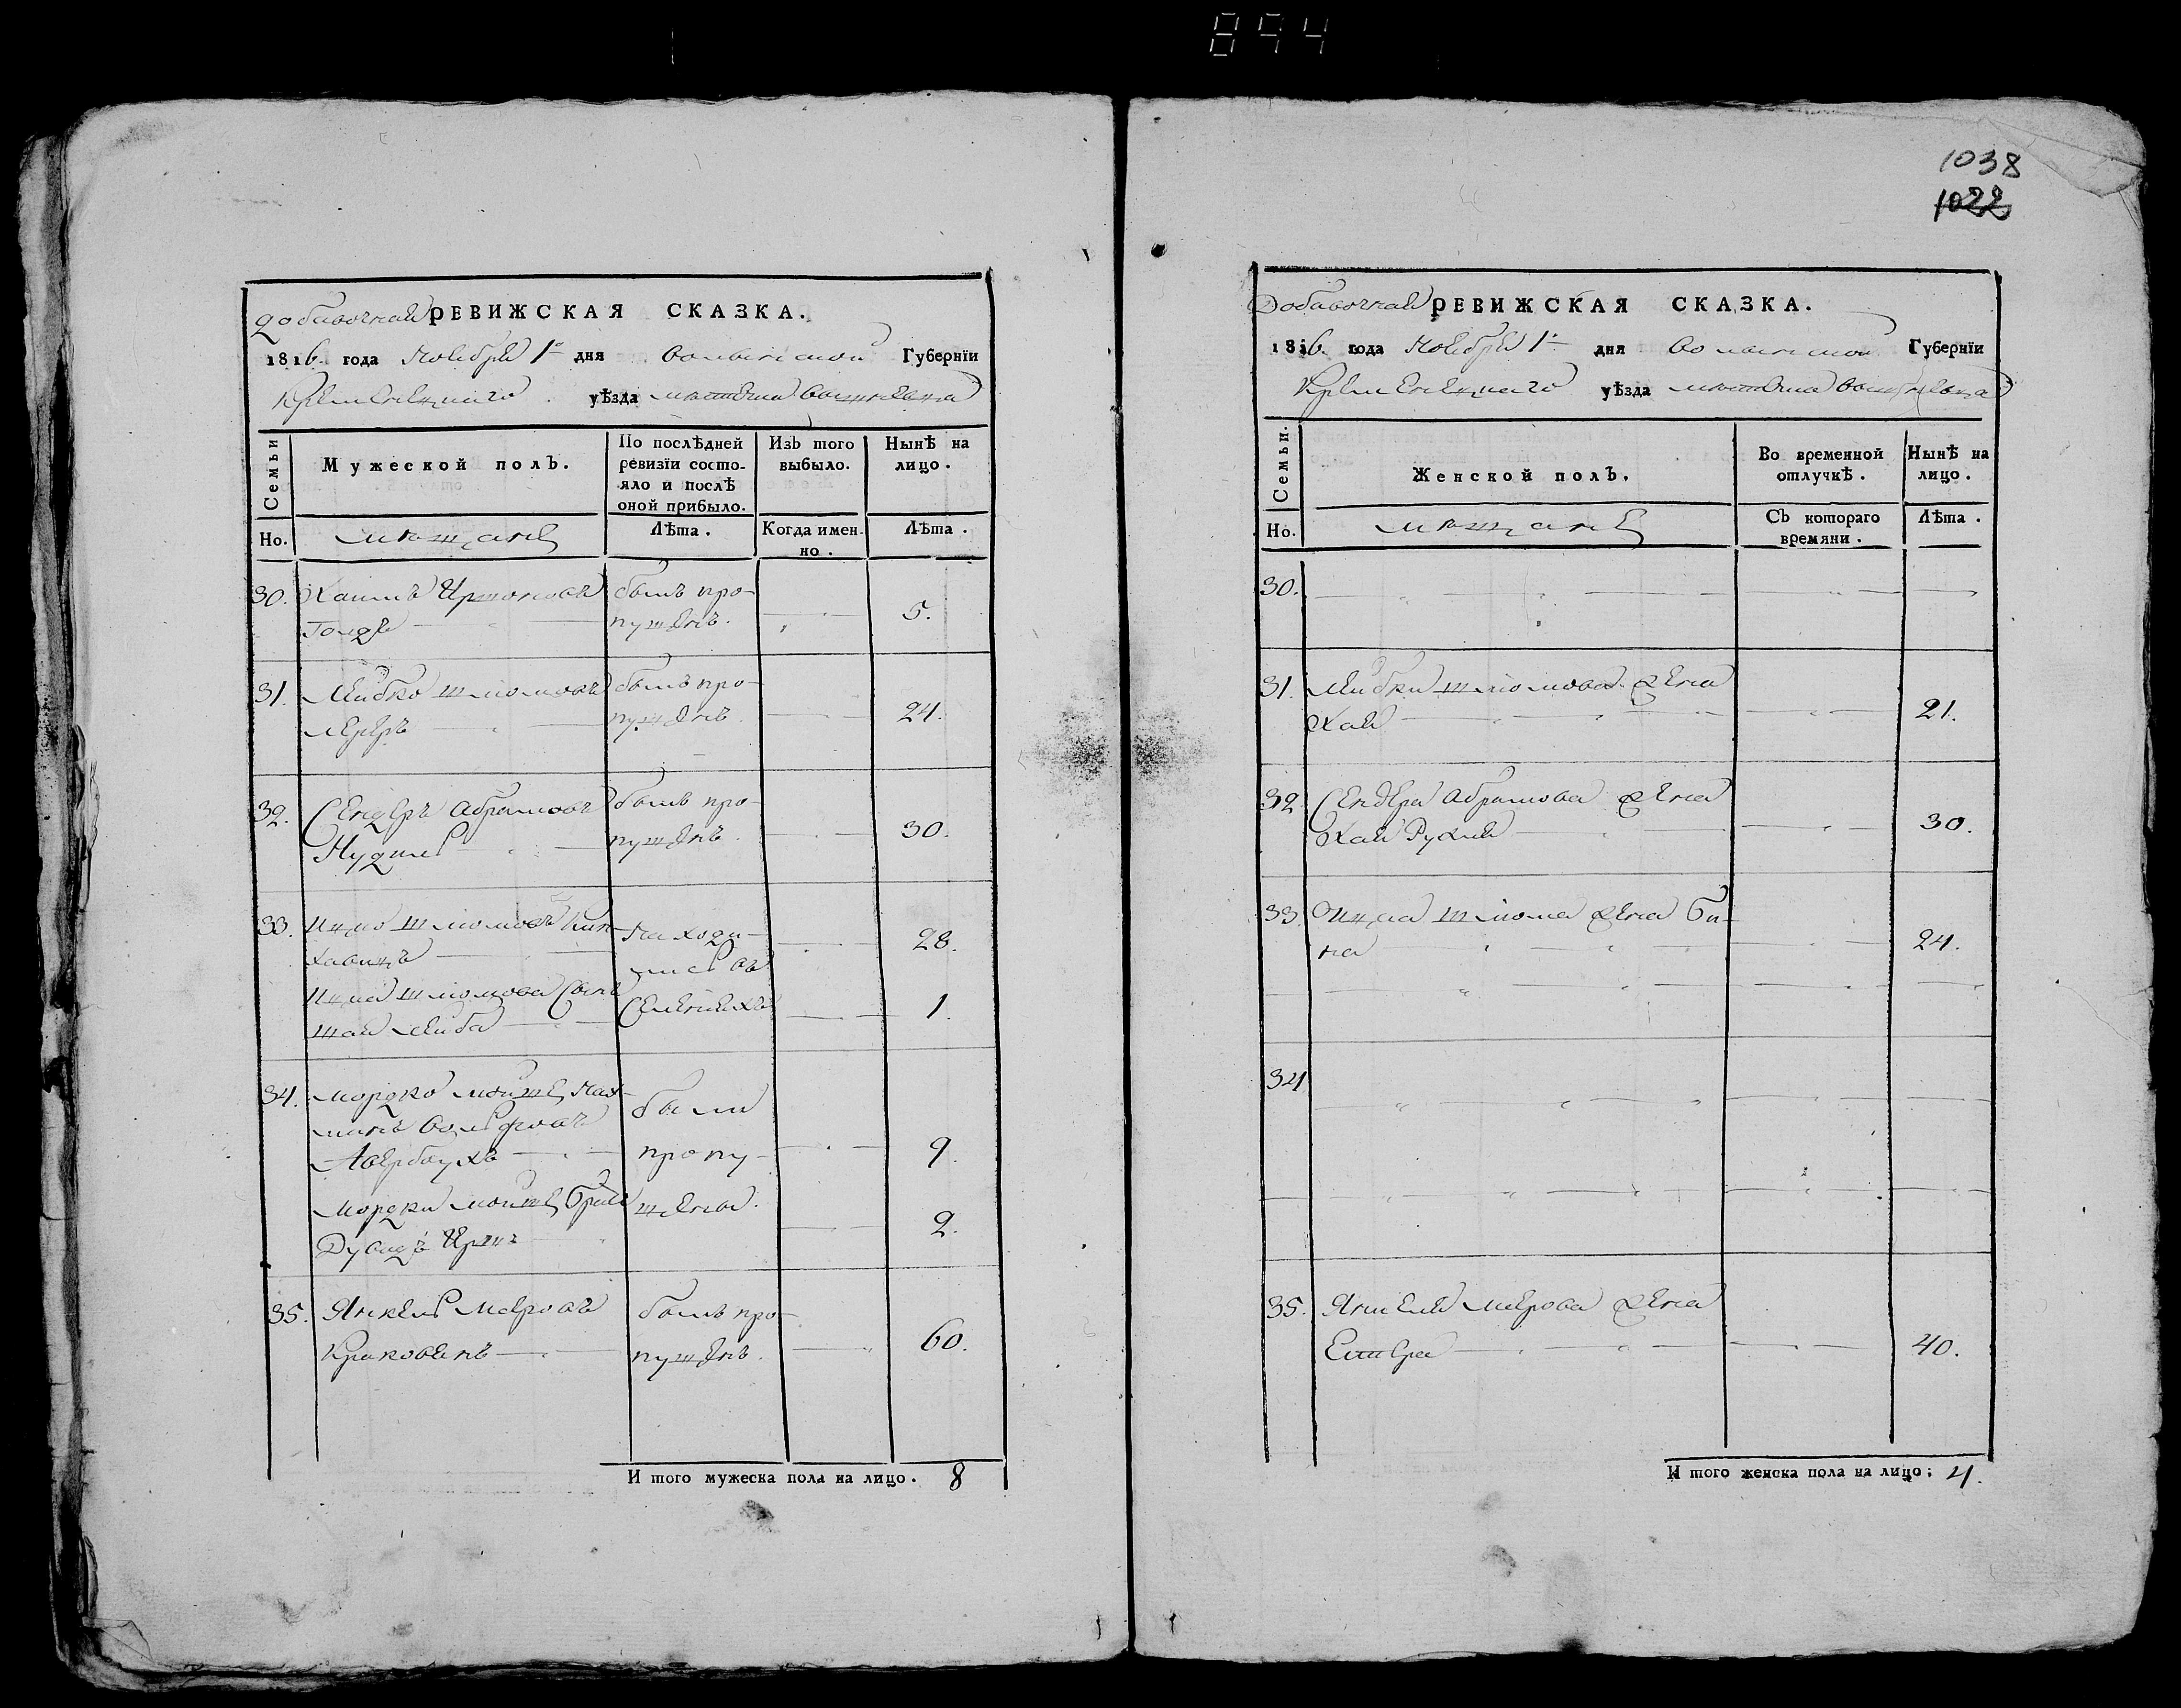 894
добавочная РЕВИЖСКАЯ СКАЗКА.
1816. года Ноября 1го дня волынской Губерніи
Кременецкаго уѣзда местечка вишневца
Семьи
Мужеской полъ.
По послѣдней
ревизіи состо-
яло и послѣ
оной прибыло.
Изъ того
выбыло.
Нынѣ на
лицо.
Но.
мещане
Лѣта.
Когда имен-
но.
Лѣта.
30. Хаимъ Ицтоковъ былъ про-
пущенъ. 5.
31. Лейбко шліомовъ былъ про-
Лереръ пущенъ. 24.
32. Сендеръ Абрамовъ былъ про-
Нудель пущенъ. 30.
33. Ицко шліомовъ
находи-
лись въ 28.
Ицка шліомова сынъ
шая Лейба 1.
34. мордко мойше нах-
манъ вольфовъ были
Авербухъ пропу- 9.
мордки мойше братъ щены.
Дувидъ Гершъ 2.
35. Янкель меровъ былъ про-
Краковенъ пущенъ. 60.
И того мужеска пола на лицо. 8
1038
1022
Добавочная РЕВИЖСКАЯ СКАЗКА.
1816. года Ноября 1го дня волынской Губерніи
Кременецкаго уѣзда местечка вишневца
Семьи.
Женской полъ.
Во временной
отлучкѣ.
Нынѣ на
лицо.
Но.
мещане
Съ котораго
времяни.
Лѣта.
30.
31. Лейбки шліомова жена
Хая 21.
32 Сендера Абрамова жена
Хая Рухля 30.
33. Ицка шліома жена би-
на 24.
34
35. Янкеля мерова жена
Естера 40.
И того женска пола на лицо; 4.